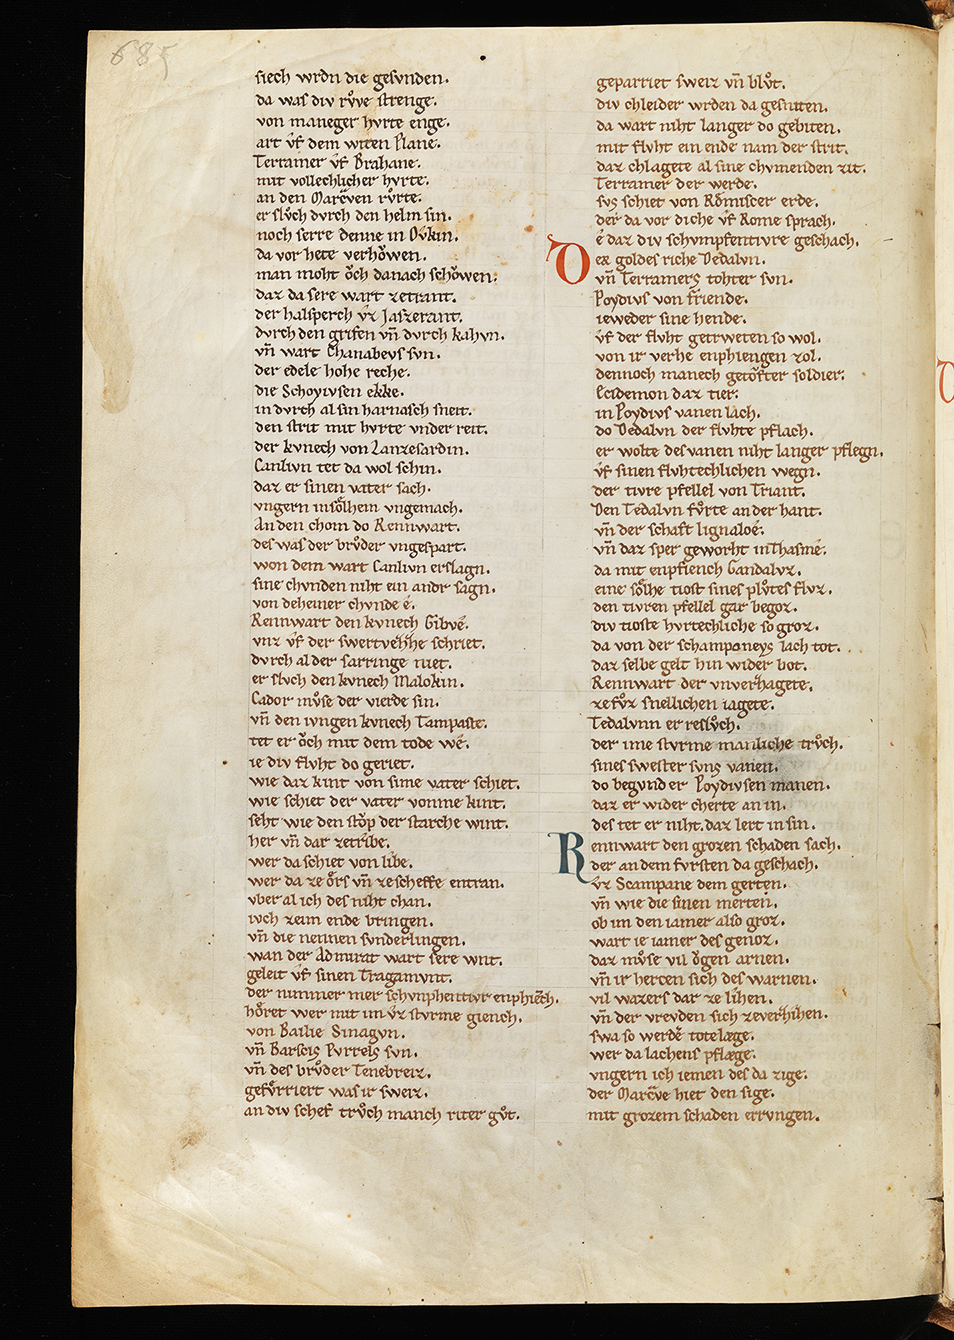 685
siech wrdn die gesvnden.
da was div rv̊we strenge.
von maneger hvrte enge.
art v̂f dem witen Plane.
Terramer v̂f Brahane.
mit vollechlicher hvrte.
an den Marc̄ven rv̊rte.
er slv̊ch dvrch den helm sin.
noch serre denne in Ov̊kin.
da vor hete verhôwen.
man moht ôch danach schôwen.
daz da sere wart zetrant.
der halsperch v̂z Jaszerant.
dvrch den grifen vn̄ dvrch kahvn.
vn̄ wart Chanabevs svn.
der edele hohe reche.
die Schoyivsen ekke.
in dvrch al sin harnasch sneit.
den strit mit hvrte vnder reit.
der kvnech von Lanzesardin.
Canlivn tet da wol schin.
daz er sinen vater sach.
vngern insôlhem vngemach.
An den chom do Rennwart.
des was der brv̊der vngespart.
won dem wart Canlivn erslagn.
sine chvnden niht ein andr sagn.
von deheiner chvnde é.
Rennwart den kvnech Gibvé.
vnz v̂f der swertvehhe schriet.
dvrch al der sarringe niet.
er slvch den kvnech Malokin.
Cador mv̊se der vierde sin.
vn̄ den ivngen kvnech Tampaste.
tet er ôch mit dem tode wé.
ie div flvht do geriet.
wie daz kint von sime vater schiet.
wie schiet der vater vonme kint.
seht wie den stôp der starche wint.
her vn̄ dar zetribe.
wer da schiet von libe.
wer da ze ôrs vn̄ ze scheffe entran.
vber al ich des niht chan.
ivch zeim ende bringen.
vn̄ die nennen svnderlingen.
wan der Admirat wart sere wnt.
geleit v̂f sinen Tragamvnt.
der nimmer mer schvnphentivr enphiēch.
hôret wer mit im v̂z stvrme giench.
von Bailie Sinagvn.
vn̄ Barseis Pvrrels svn.
vn̄ des brv̊der Tenebreiz.
gefôrriert was ir sweiz.
an div schef trv̊ch manch riter gv̊t.
gepartiet sweiz vn̄ blv̊t.
div chleider wrden da gesniten.
da wart niht langer do gebiten.
mit flvht ein ende nam der strit.
daz chlagete al sine chvmenden zit.
Terramer der werde.
svs schiet von Rômiscer erde.
der da vor diche v̂f Rome sprach.
é daz div schvmpfentivre geschach.
Dez goldes riche Tedalvn.
vn̄ Terramers tohter svn.
Poydivs von friende.
ieweder sine hende.
v̂f der flvht getrweten so wol.
von ir verhe enphiengen zol.
dennoch manech getôfter soldier.
Ecidemon daz tier.
in Poydivs vanen lach.
do Tedalvn der flvhte pflach.
er wolte des vanen niht langer pflegn.
v̂f sinen flvhtechlichen wegn.
der tivre pfellel von Triant.
Den Tedalvn fv̊rte an der hant.
vn̄ der schaft lignaloé.
vn̄ daz sper geworht in Thasmé.
da mit enpfiench Gandalvz.
eine sôlhe tiost sines plv̊tes flvz.
den tivren pfellel gar begoz.
div tioste hvrtechliche so groz.
da von der schamponeys lach tot.
daz selbe gelt hin wider bot.
Rennwart der vnverhagete.
ze fv̊z snellichen iagete.
Tedalvnn er reslv̊ch.
der ime stvrme manliche trv̊ch.
sines swester svns vanen.
do begvnd er Poydivsen manen.
daz er wider cherte an in.
des tet er niht. daz lert in sin.
Rennwart den grozen schaden sach.
der an dem fvrsten da geschach.
v̂z Scampane dem gerten.
vn̄ wie die sinen merten.
ob im den iamer also groz.
wart ie iamer des genoz.
daz mv̊se vil ôgen arnen.
vn̄ ir hercen sich des warnen.
vil wazers dar ze lihen.
vn̄ der vrevden sich zeverhihen.
swa so werdē totelæge.
wer da lachens pflæge.
vngern ich iemen des da zige.
der Marc̄ve hiet den sige.
mit grozem schaden errvngen.